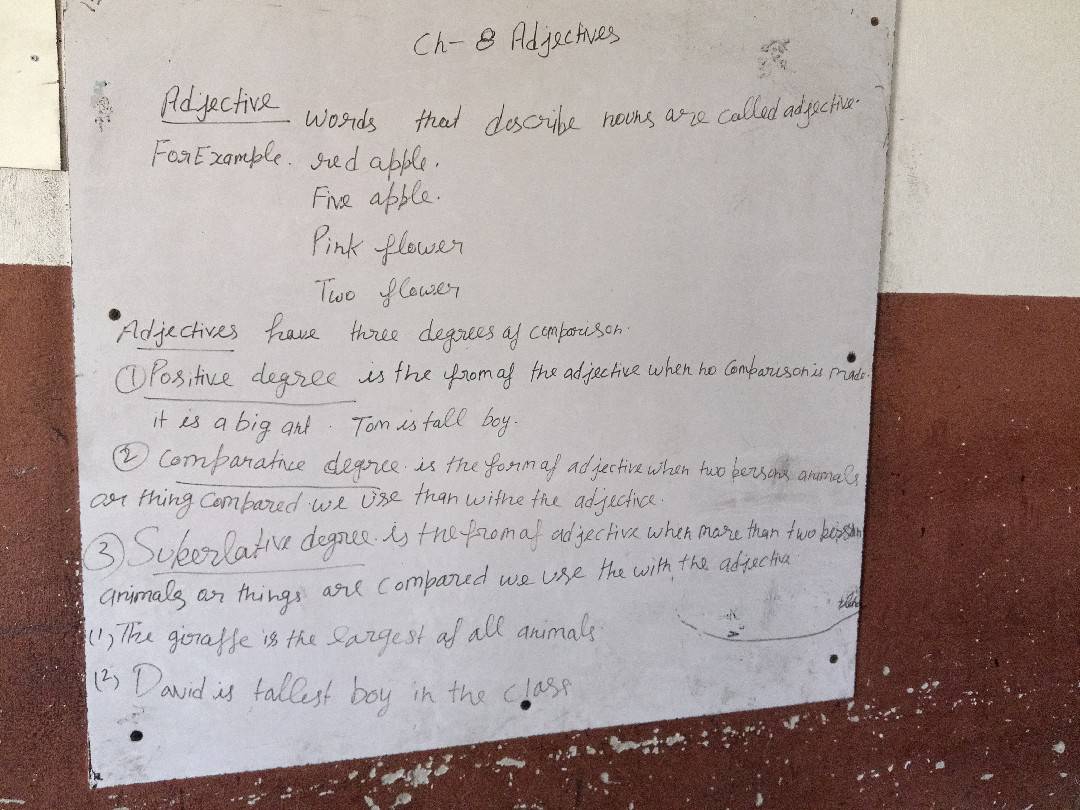 Ch-8 Adjectives
Adjective words that describe nouns are called adjective.
For Example. red apple.
Five apple.
Pink flower
Two flower
Adjectives have three degrees of comparison.
① Positive degree is the from of the adjective when no comparison is made.
it is a big ant. Tom is tall boy.
② Comparative degree is the form of adjective when two persons animals
or thing compared we use than withe the adjective.
③ Superlative degree is the from of adjective when more than two person
animals or things are compared we use the with the adjective
(1) The giraffe is the largest of all animals
(2) David is tallest boy in the class